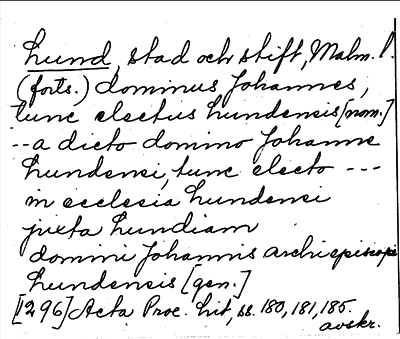 Lund, stad och stift, Malm. l.
(forts.) dominus Johannes,
tunc electus Lundensis [nom.]
-- a dicto domino Johanne
Lundensi, tunc electo ---
in ecclesia Lundensi
juxta Lundiam
domini Johannis archiepiscopi
Lundensis [gen.]
[1296] Acta Proc. Lit., ss. 180, 181, 185.
avskr.